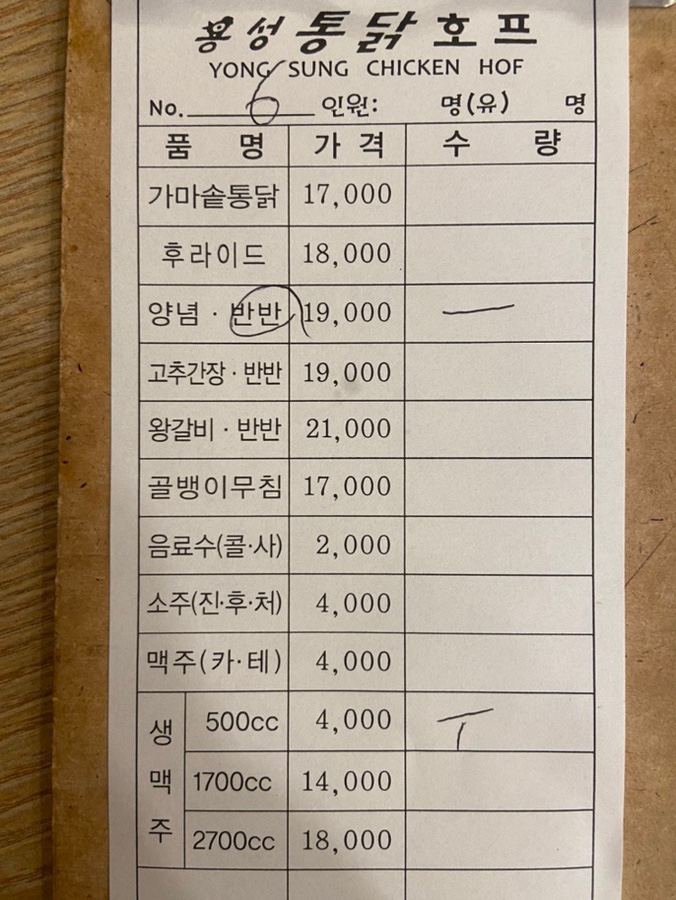 용성통닭호프
YONG SUNG CHICKEN HOF
No. 6 인원: 명(유) 명
품 명 가 격 수 량
가마솥통닭 17,000
후라이드 18,000
양념 · 반반 19,000 一
고추간장 · 반반 19,000
왕갈비 · 반반 21,000
골뱅이무침 17,000
음료수(콜·사) 2,000
소주(진·후·처) 4,000
맥주(카·테) 4,000
생맥주
500cc 4,000 T
1700cc 14,000
2700cc 18,000